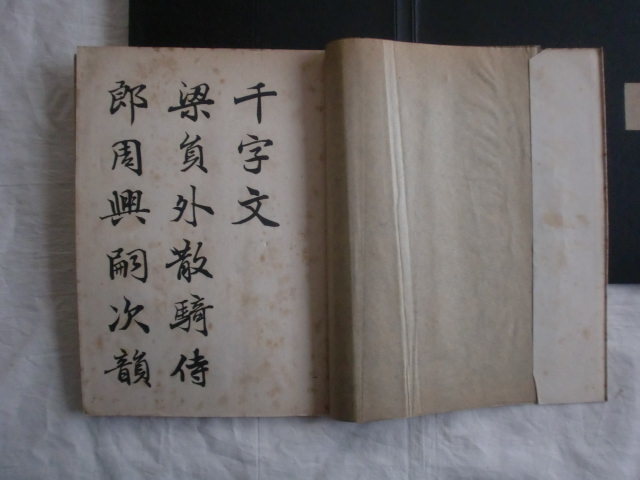 千字文
梁員外散騎侍
郎周興嗣次韻